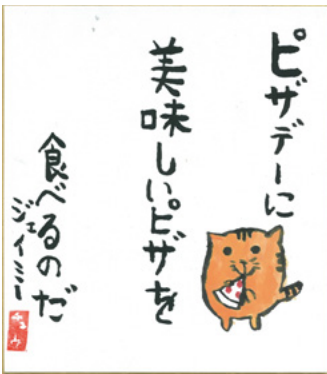 ピザデーに
美味しいピザを
食べるのだ
ジェイミー